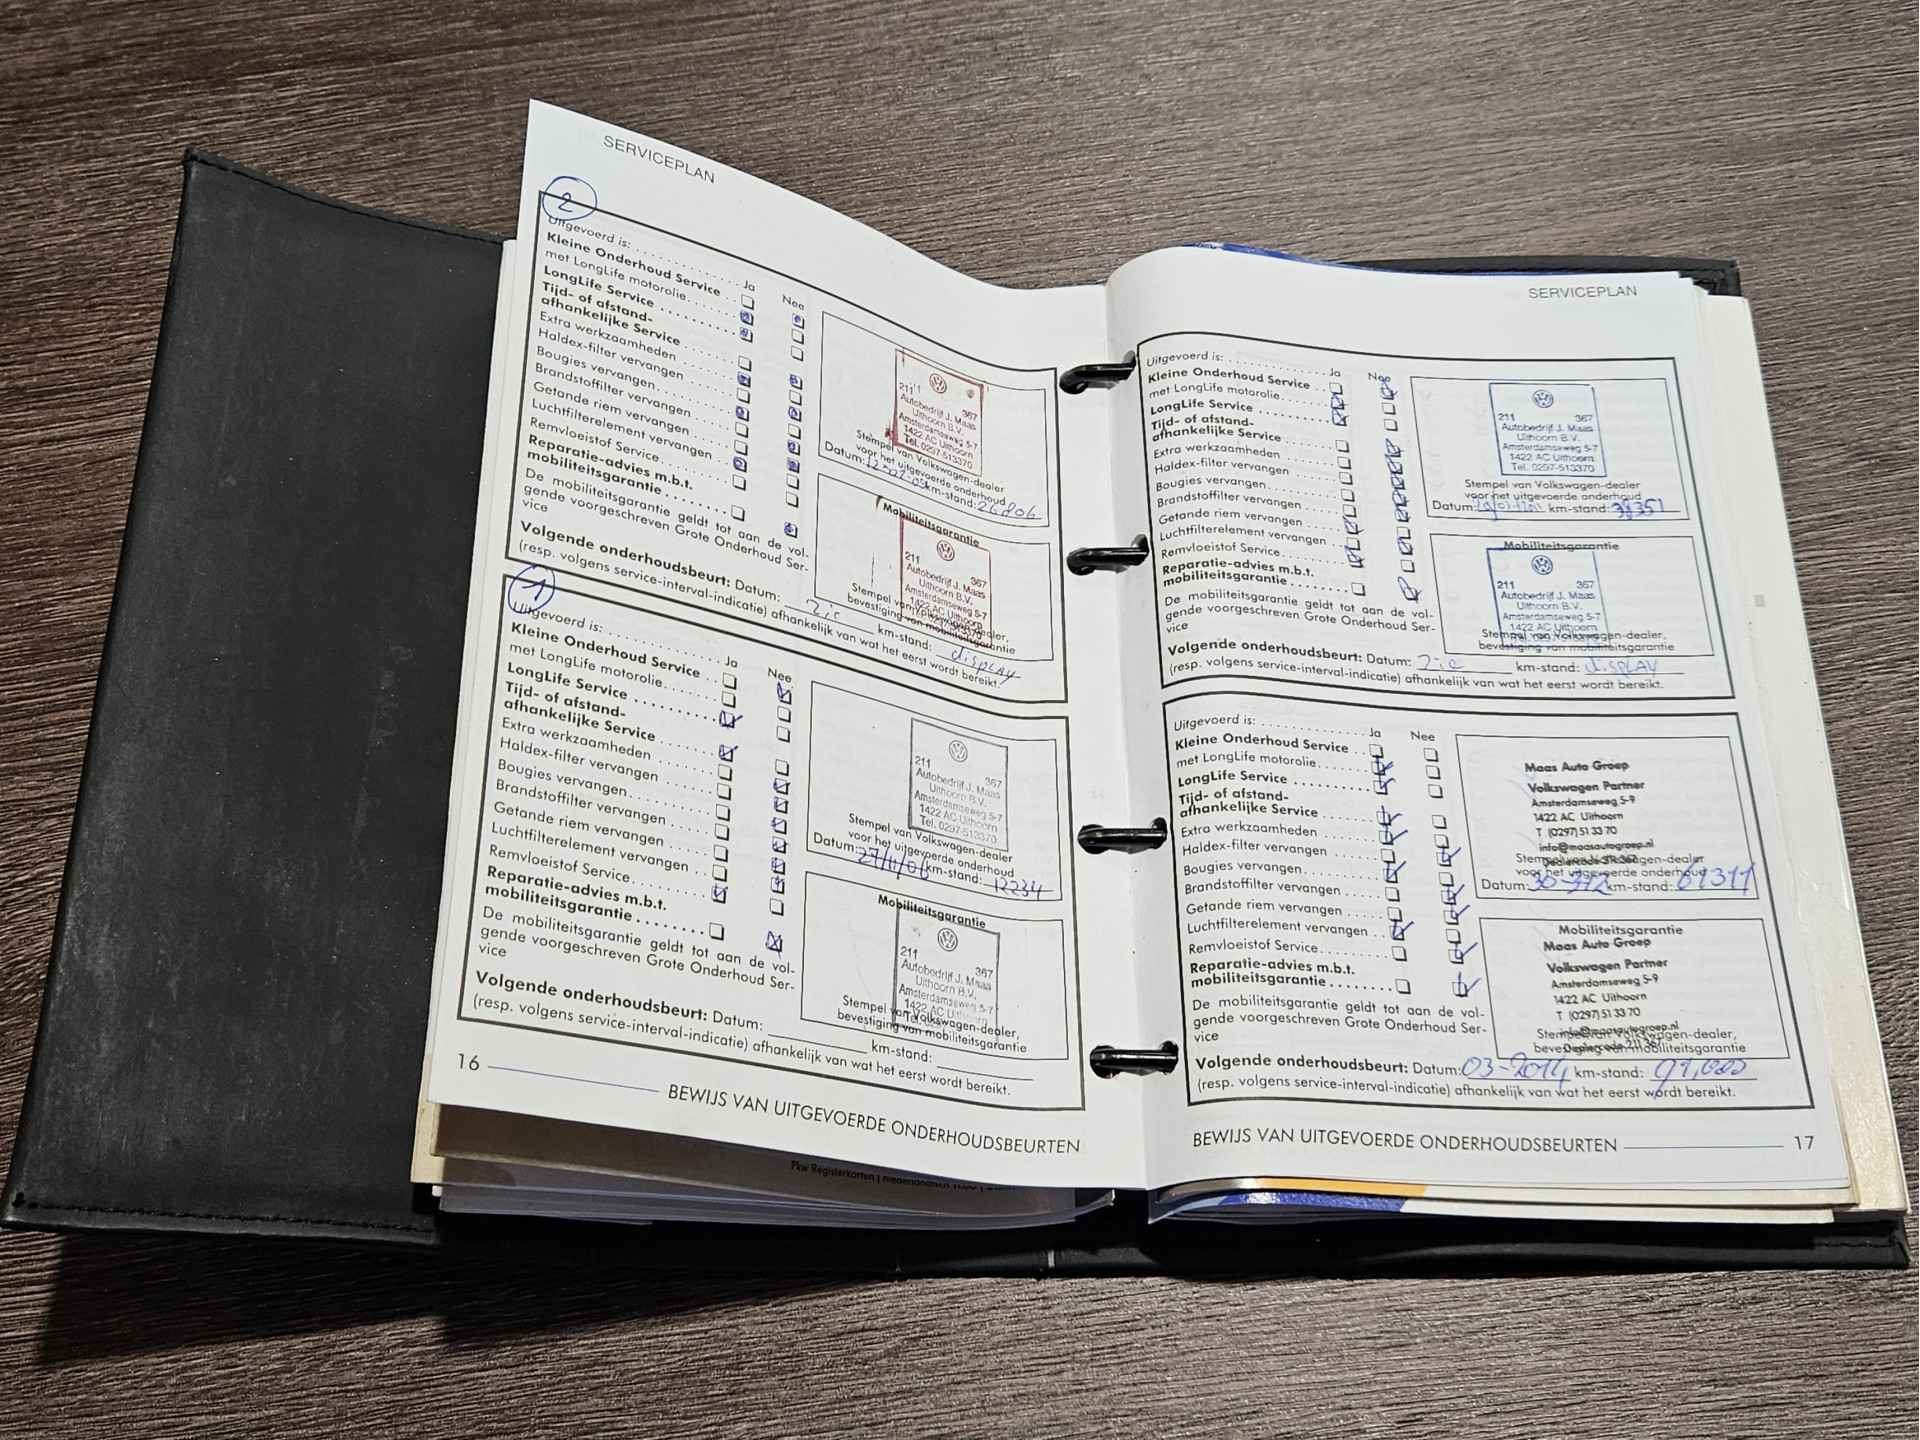 SERVICEPLAN
2
Uitgevoerd is: . . . . . . . . . . . . . . . . . . . Ja Nee
Kleine Onderhoud Service . .
met LongLife motorolie. . . . . .
LongLife Service . . . . . . . . . . . . . .
Tijd- of afstand-
afhankelijke Service . . . . . . . .
Extra werkzaamheden
Haldex-filter vervangen . . . . . . .
Bougies vervangen. . . . . . . . . . . .
Brandstoffilter vervangen . . . . . .
Getande riem vervangen . . . . . .
Luchtfilterelement vervangen . . .
Remvloeistof Service. . . . . . . . . .
Reparatie-advies m.b.t.
mobiliteitsgarantie . . . . . . . .
De mobiliteitsgarantie geldt tot aan de vol-
gende voorgeschreven Grote Onderhoud Ser-
vice
211 367
Autobedrijf J. Maas
Uithoorn B.V.
Amsterdamseweg 5-7
1422 AC Uithoorn
Tel. 0297-513370
Stempel van Volkswagen-dealer
voor het uitgevoerde onderhoud
Datum: km-stand: 26806
Mobiliteitsgarantie
211 367
Autobedrijf J. Maas
Uithoorn B.V.
Amsterdamseweg 5-7
1422 AC Uithoorn
Stempel van Volkswagen-dealer,
bevestiging van mobiliteitsgarantie
Volgende onderhoudsbeurt: Datum: Zie km-stand: display
(resp. volgens service-interval-indicatie) afhankelijk van wat het eerst wordt bereikt.
1
Uitgevoerd is: . . . . . . . . . . . . . . . . . . . Ja Nee
Kleine Onderhoud Service . .
met LongLife motorolie. . . . . .
LongLife Service . . . . . . . . . . . . . .
Tijd- of afstand-
afhankelijke Service . . . . . . . .
Extra werkzaamheden
Haldex-filter vervangen . . . . . . .
Bougies vervangen. . . . . . . . . . . .
Brandstoffilter vervangen . . . . . .
Getande riem vervangen . . . . . .
Luchtfilterelement vervangen . . .
Remvloeistof Service. . . . . . . . . .
Reparatie-advies m.b.t.
mobiliteitsgarantie . . . . . . . .
De mobiliteitsgarantie geldt tot aan de vol-
gende voorgeschreven Grote Onderhoud Ser-
vice
211 367
Autobedrijf J. Maas
Uithoorn B.V.
Amsterdamseweg 5-7
1422 AC Uithoorn
Tel. 0297-513370
Stempel van Volkswagen-dealer
voor het uitgevoerde onderhoud
Datum: 27/11/06 km-stand: 12234
Mobiliteitsgarantie
211 367
Autobedrijf J. Maas
Uithoorn B.V.
Amsterdamseweg 5-7
1422 AC Uithoorn
Stempel van Volkswagen-dealer,
bevestiging van mobiliteitsgarantie
Volgende onderhoudsbeurt: Datum: km-stand:
(resp. volgens service-interval-indicatie) afhankelijk van wat het eerst wordt bereikt.
16
BEWIJS VAN UITGEVOERDE ONDERHOUDSBEURTEN
Pkw Registerkarten
SERVICEPLAN
Uitgevoerd is: . . . . . . . . . . . . . . . . . . . Ja Nee
Kleine Onderhoud Service . .
met LongLife motorolie. . . . . .
LongLife Service . . . . . . . . . . . . . .
Tijd- of afstand-
afhankelijke Service . . . . . . . .
Extra werkzaamheden . . . . . . . .
Haldex-filter vervangen . . . . . . .
Bougies vervangen. . . . . . . . . . . .
Brandstoffilter vervangen . . . . . .
Getande riem vervangen . . . . . .
Luchtfilterelement vervangen . . .
Remvloeistof Service. . . . . . . . . .
Reparatie-advies m.b.t.
mobiliteitsgarantie . . . . . . . .
De mobiliteitsgarantie geldt tot aan de vol-
gende voorgeschreven Grote Onderhoud Ser-
vice
211 367
Autobedrijf J. Maas
Uithoorn B.V.
Amsterdamseweg 5-7
1422 AC Uithoorn
Tel. 0297-513370
Stempel van Volkswagen-dealer
voor het uitgevoerde onderhoud
Datum: km-stand: 38351
Mobiliteitsgarantie
211 367
Autobedrijf J. Maas
Uithoorn B.V.
Amsterdamseweg 5-7
1422 AC Uithoorn
Stempel van Volkswagen-dealer,
bevestiging van mobiliteitsgarantie
Volgende onderhoudsbeurt: Datum: Zie km-stand: display
(resp. volgens service-interval-indicatie) afhankelijk van wat het eerst wordt bereikt.
Uitgevoerd is: . . . . . . . . . . . . . . . . . . . Ja Nee
Kleine Onderhoud Service . .
met LongLife motorolie. . . . . .
LongLife Service . . . . . . . . . . . . . .
Tijd- of afstand-
afhankelijke Service . . . . . . . .
Extra werkzaamheden . . . . . . . .
Haldex-filter vervangen . . . . . . .
Bougies vervangen . . . . . . . . . . . .
Brandstoffilter vervangen . . . . . .
Getande riem vervangen . . . . . .
Luchtfilterelement vervangen . . .
Remvloeistof Service. . . . . . . . . .
Reparatie-advies m.b.t.
mobiliteitsgarantie. . . . . . . . .
De mobiliteitsgarantie geldt tot aan de vol-
gende voorgeschreven Grote Onderhoud Ser-
vice
Maas Auto Groep
Volkswagen Partner
Amsterdamseweg 5-9
1422 AC Uithoorn
T (0297) 51 33 70
info@maasautogroep.nl
Dealercode 211 367
Stempel van Volkswagen-dealer
voor het uitgevoerde onderhoud
Datum: km-stand: 61311
Mobiliteitsgarantie
Maas Auto Groep
Volkswagen Partner
Amsterdamseweg 5-9
1422 AC Uithoorn
T (0297) 51 33 70
info@maasautogroep.nl
Dealercode 211 367
Stempel van Volkswagen-dealer,
bevestiging van mobiliteitsgarantie
Volgende onderhoudsbeurt: Datum: 03-2014 km-stand: 91,000
(resp. volgens service-interval-indicatie) afhankelijk van wat het eerst wordt bereikt.
BEWIJS VAN UITGEVOERDE ONDERHOUDSBEURTEN
17